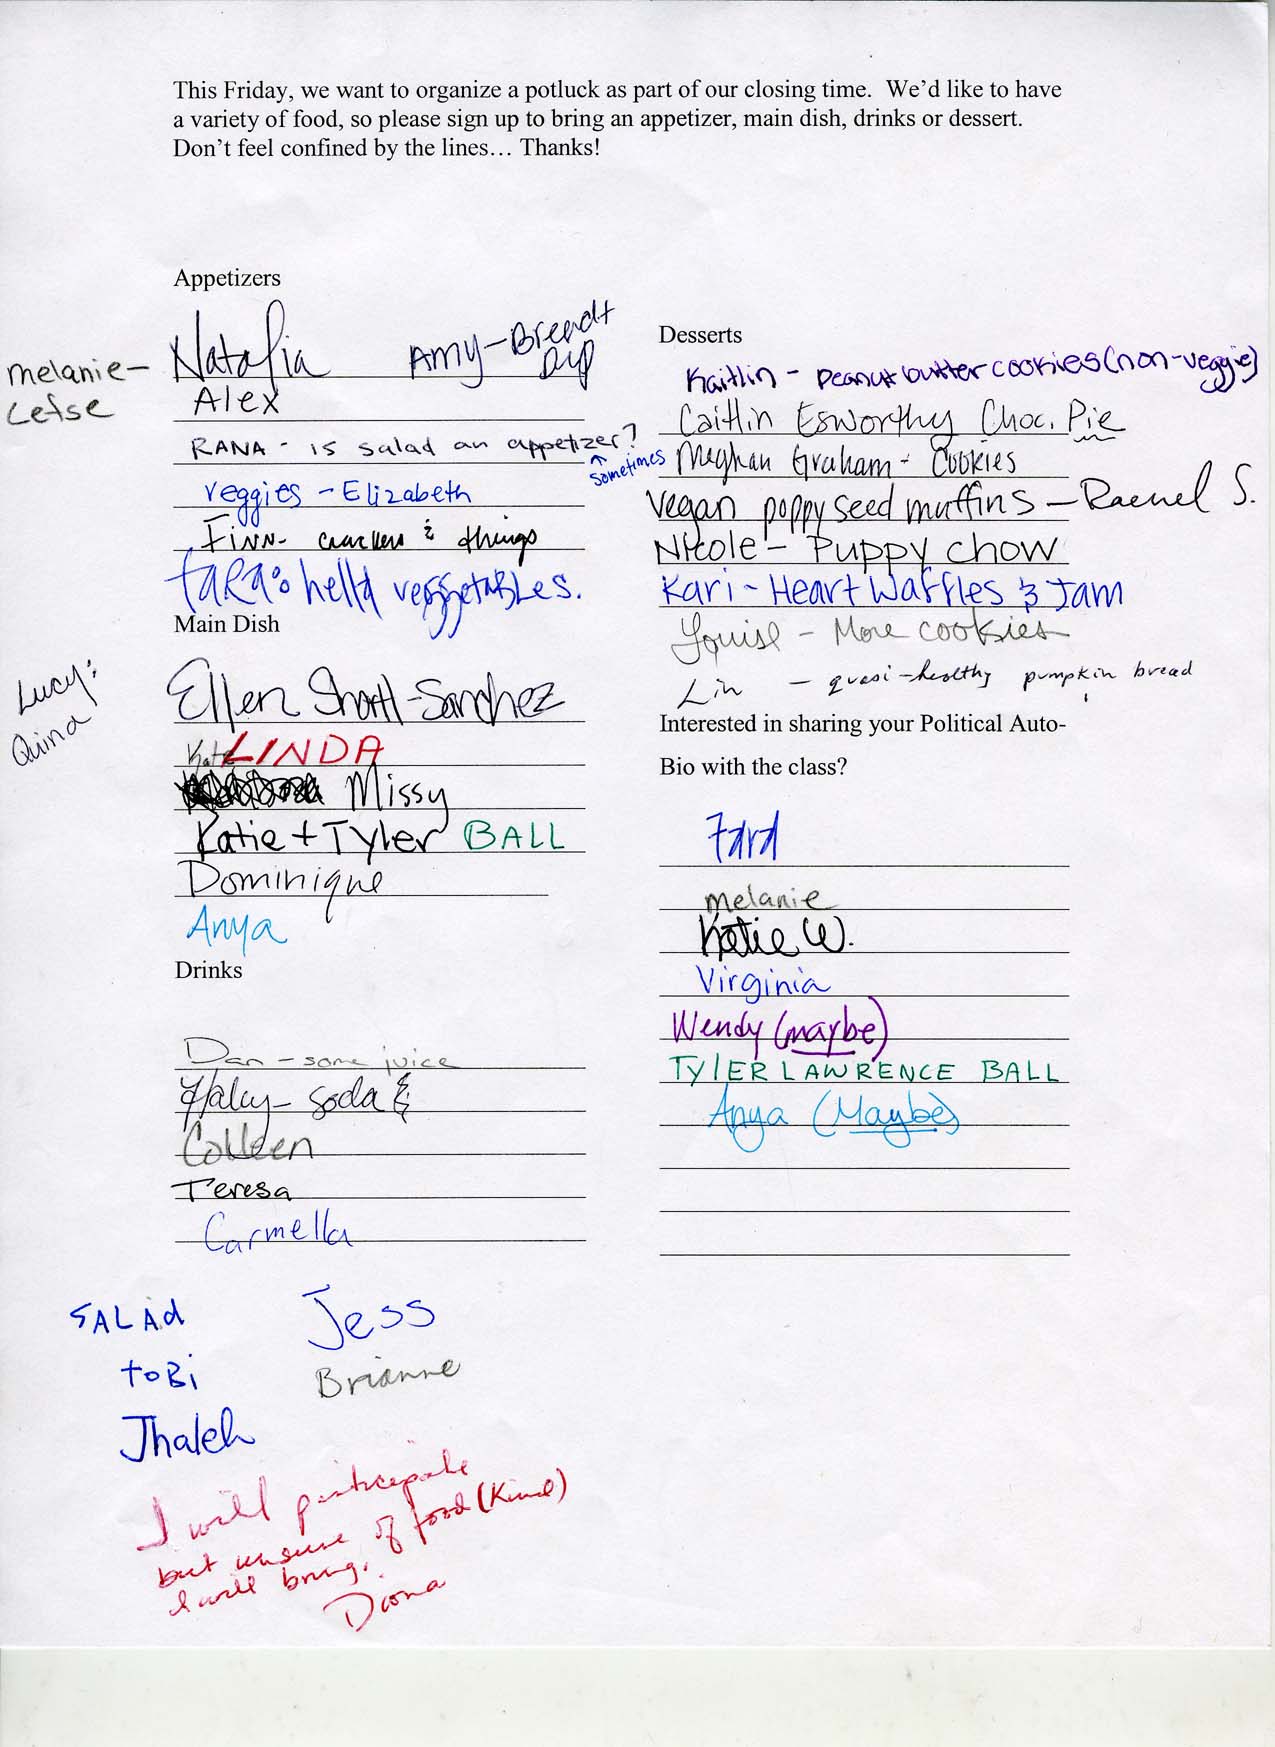 This Friday, we want to organize a potluck as part of our closing time. We'd like to have
a variety of food, so please sign up to bring an appetizer, main dish, drinks or dessert.
Don't feel confined by the lines… Thanks!
Appetizers
melanie -
Lefse
Natalia
Amy - Bread +
Dip
Alex
RANA - is salad an appetizer?
↑ sometimes
veggies - Elizabeth
Finn - crackers & things
TARA: hella veggetables.
Main Dish
Lucy:
Quina
Ellen Shortl-Sanchez
Kate LINDA
Missy
Katie + Tyler BALL
Dominique
Anya
Drinks
Dan - some juice
Haley - soda &
Colleen
Teresa
Carmella
SALAd
toBi
Jhaleh
Jess
Brianne
I will participate
but unsure of food (Kind)
I will bring.
Diona
Desserts
Kaitlin - peanut butter cookies (non-veggie)
Caitlin Esworthy Choc. Pie
Meghan Graham - Cookies
Vegan poppy seed muffins - Rachel S.
Nicole - Puppy chow
Kari - Heart Waffles & Jam
Louise - More cookies
Lin - quasi-healthy pumpkin bread
Interested in sharing your Political Auto-
Bio with the class?
Tara
melanie
Katie W.
Virginia
Wendy (maybe)
TYLER LAWRENCE BALL
Anya (Maybe)